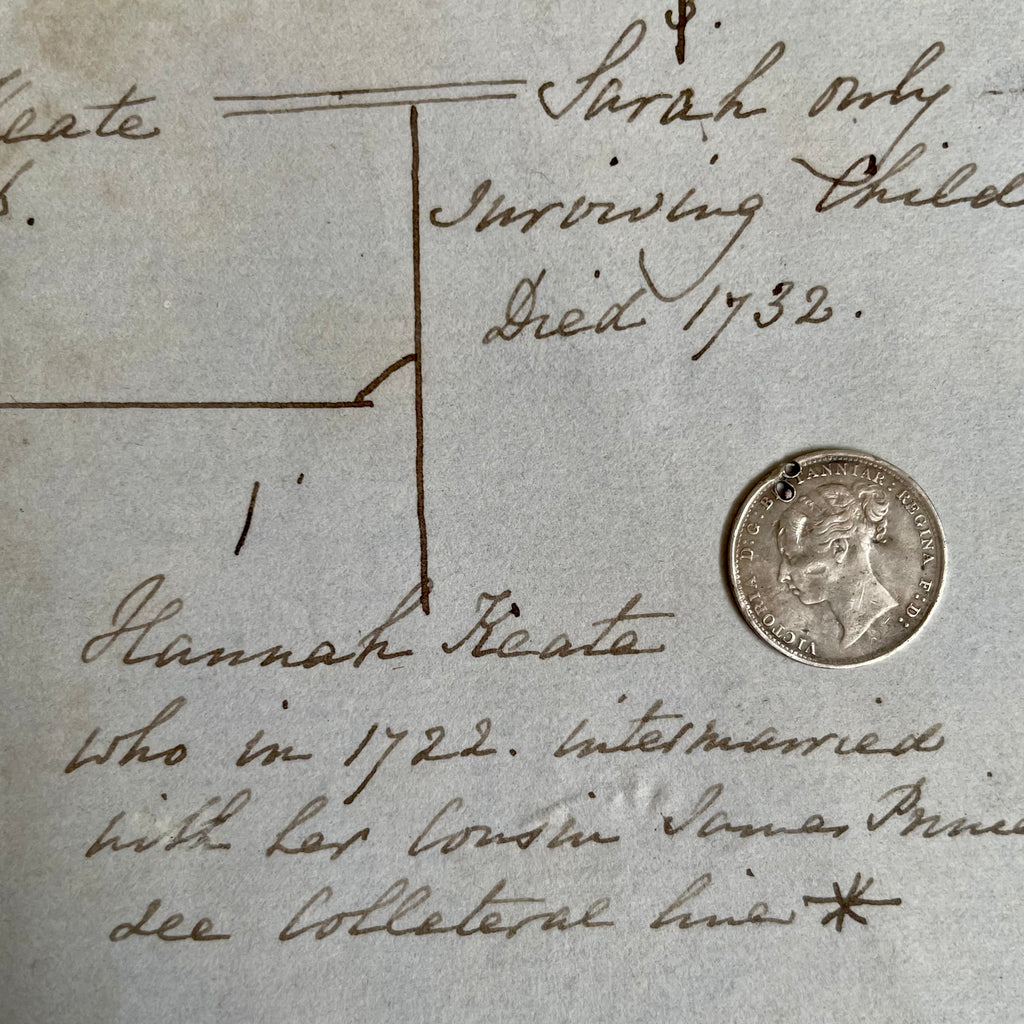 Keate Sarah only
surviving Child
Died 1732.
1
Hannah Keate
who in 1722. intermarried
with her Cousin James
see Collateral line *
VICTORIA D: G: BRITANNIAR: REGINA F: D: